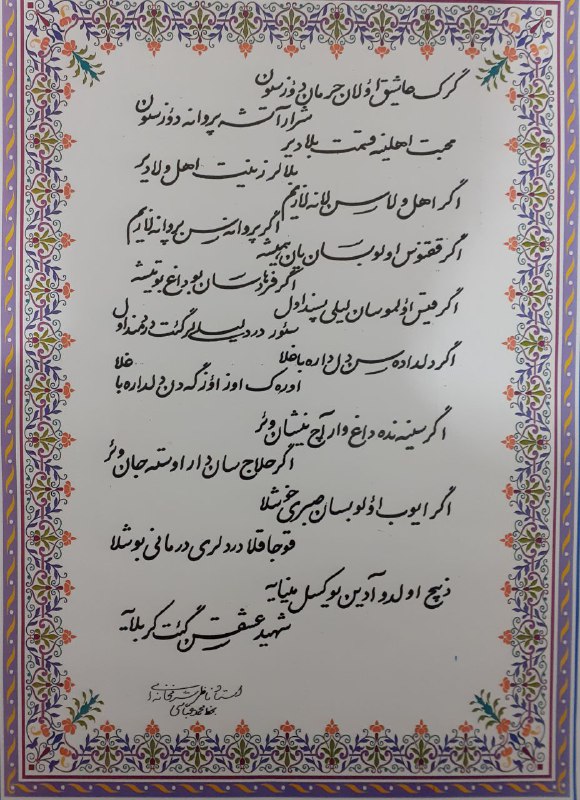 گرک عاشق اؤلان حرمان دؤزسون
شرار آتشه پروانه دؤزسون
محبت اهلینه قسمت بلادیر
بلالر زینت اهل ولادیر
اگر اهل ولاسن لانه لازیم
اگر پروانه سن پروانه لازیم
اگر ققنوس اولوبسان یان همیشه
اگر فرهادسان بو داغ بو تیشه
اگر قیس اؤلموسان لیلی پسند اول
سئور درد لیلی گئت دردمند اول
اگر دلداده سن دل داره باغلا
اوره ک اوز اؤزگه دن دلداره باغلا
اگر سینه نده داغ وار آچ نیشان وئر
اگر حلاج سان دار اوسته جان وئر
اگر ایوب اؤلوبسان صبری خوشلا
قوجاقلا دردلری درمانی بوشلا
ذبیح اولدو آدین یوکسل منایه
شهید عشق سن گئت کربلایه
استاد ناظر شرفخانه ای
بخط محمد عباسی